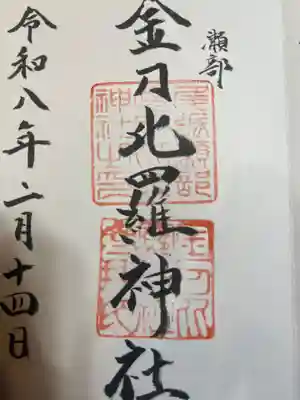 瀬部
金刀比羅神社
令和八年二月十四日